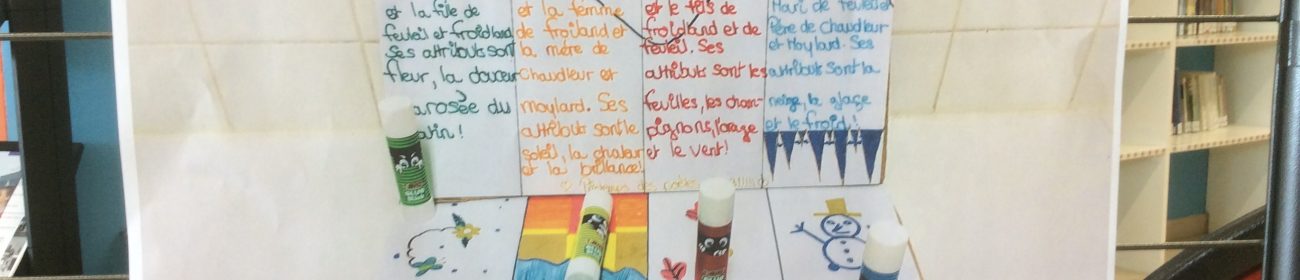 et la fille de
feuleil et froidland
Ses attributs sont
fleur, la douceur
arosée du
et la femme
de froiland et
la mère de
Chaudleur et
moylard. Ses
attributs sont le
soleil, la chaleur
et la brillance!
et le fils de
froidland et de
feuleil. Ses
attributs sont les
feuilles, les cham-
pignons, l'orage
et le vent!
Mari de feuleil et
Père de chaudleur
et Moylard. Ses
attributs sont la
neige, la glace
et le froid!